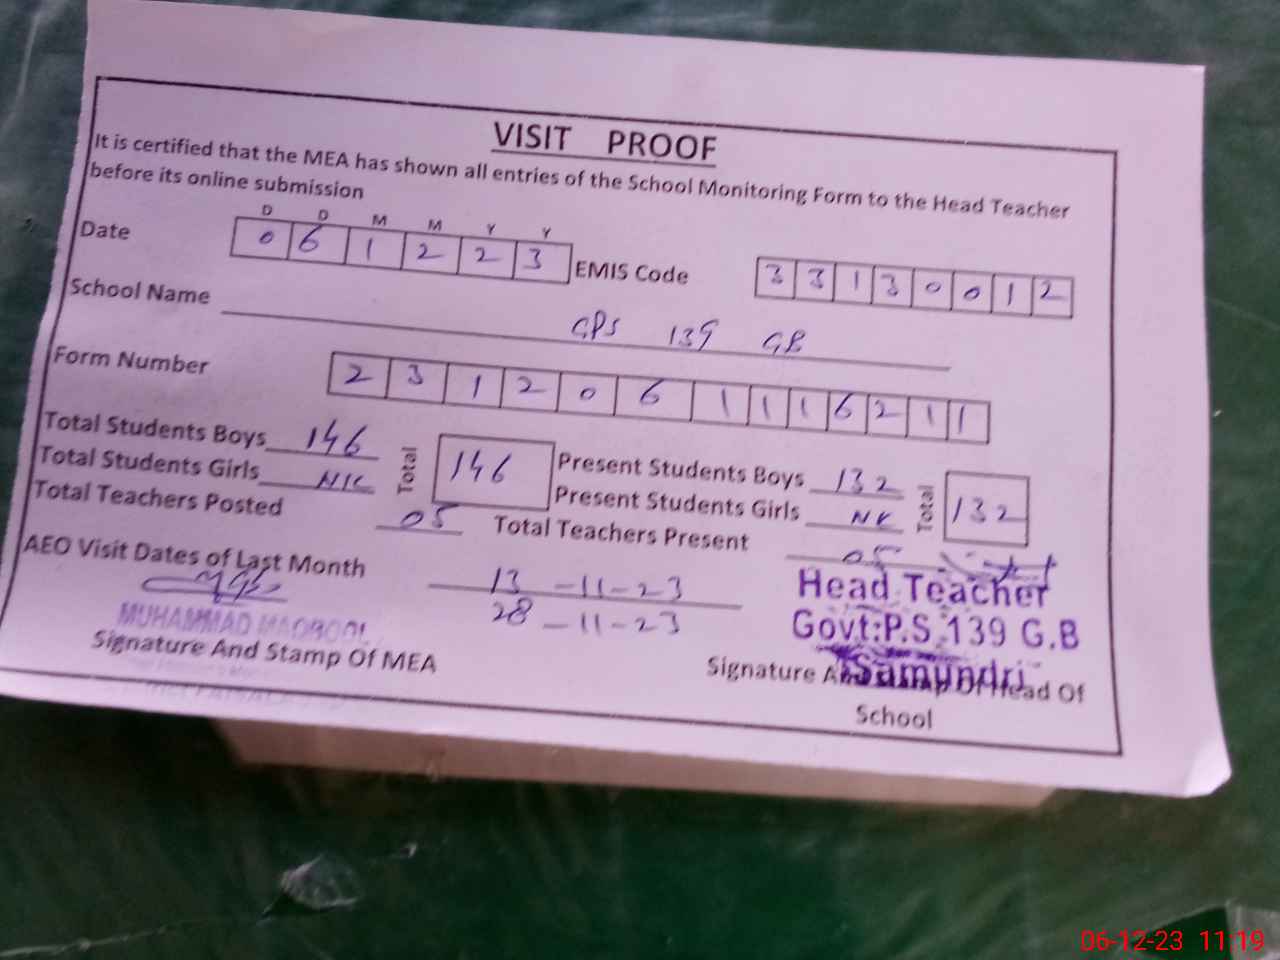 VISIT PROOF
It is certified that the MEA has shown all entries of the School Monitoring Form to the Head Teacher
before its online submission
D D M M Y Y
Date 0 6 1 2 2 3 EMIS Code 3 3 1 3 0 0 1 2
School Name GPS 139 GB
Form Number 2 3 1 2 0 6 1 1 1 6 2 1 1
Total Students Boys 146 Total 146 Present Students Boys 132 Total 132
Total Students Girls Nil Present Students Girls
Total Teachers Posted 05 Total Teachers Present 05
AEO Visit Dates of Last Month 13-11-23
28-11-23
MUHAMMAD MAQBOOL
Signature And Stamp Of MEA
Head Teacher
Govt:P.S.139 G.B
Samundri
Signature And Stamp Of Head Of
School
06-12-23 11:19